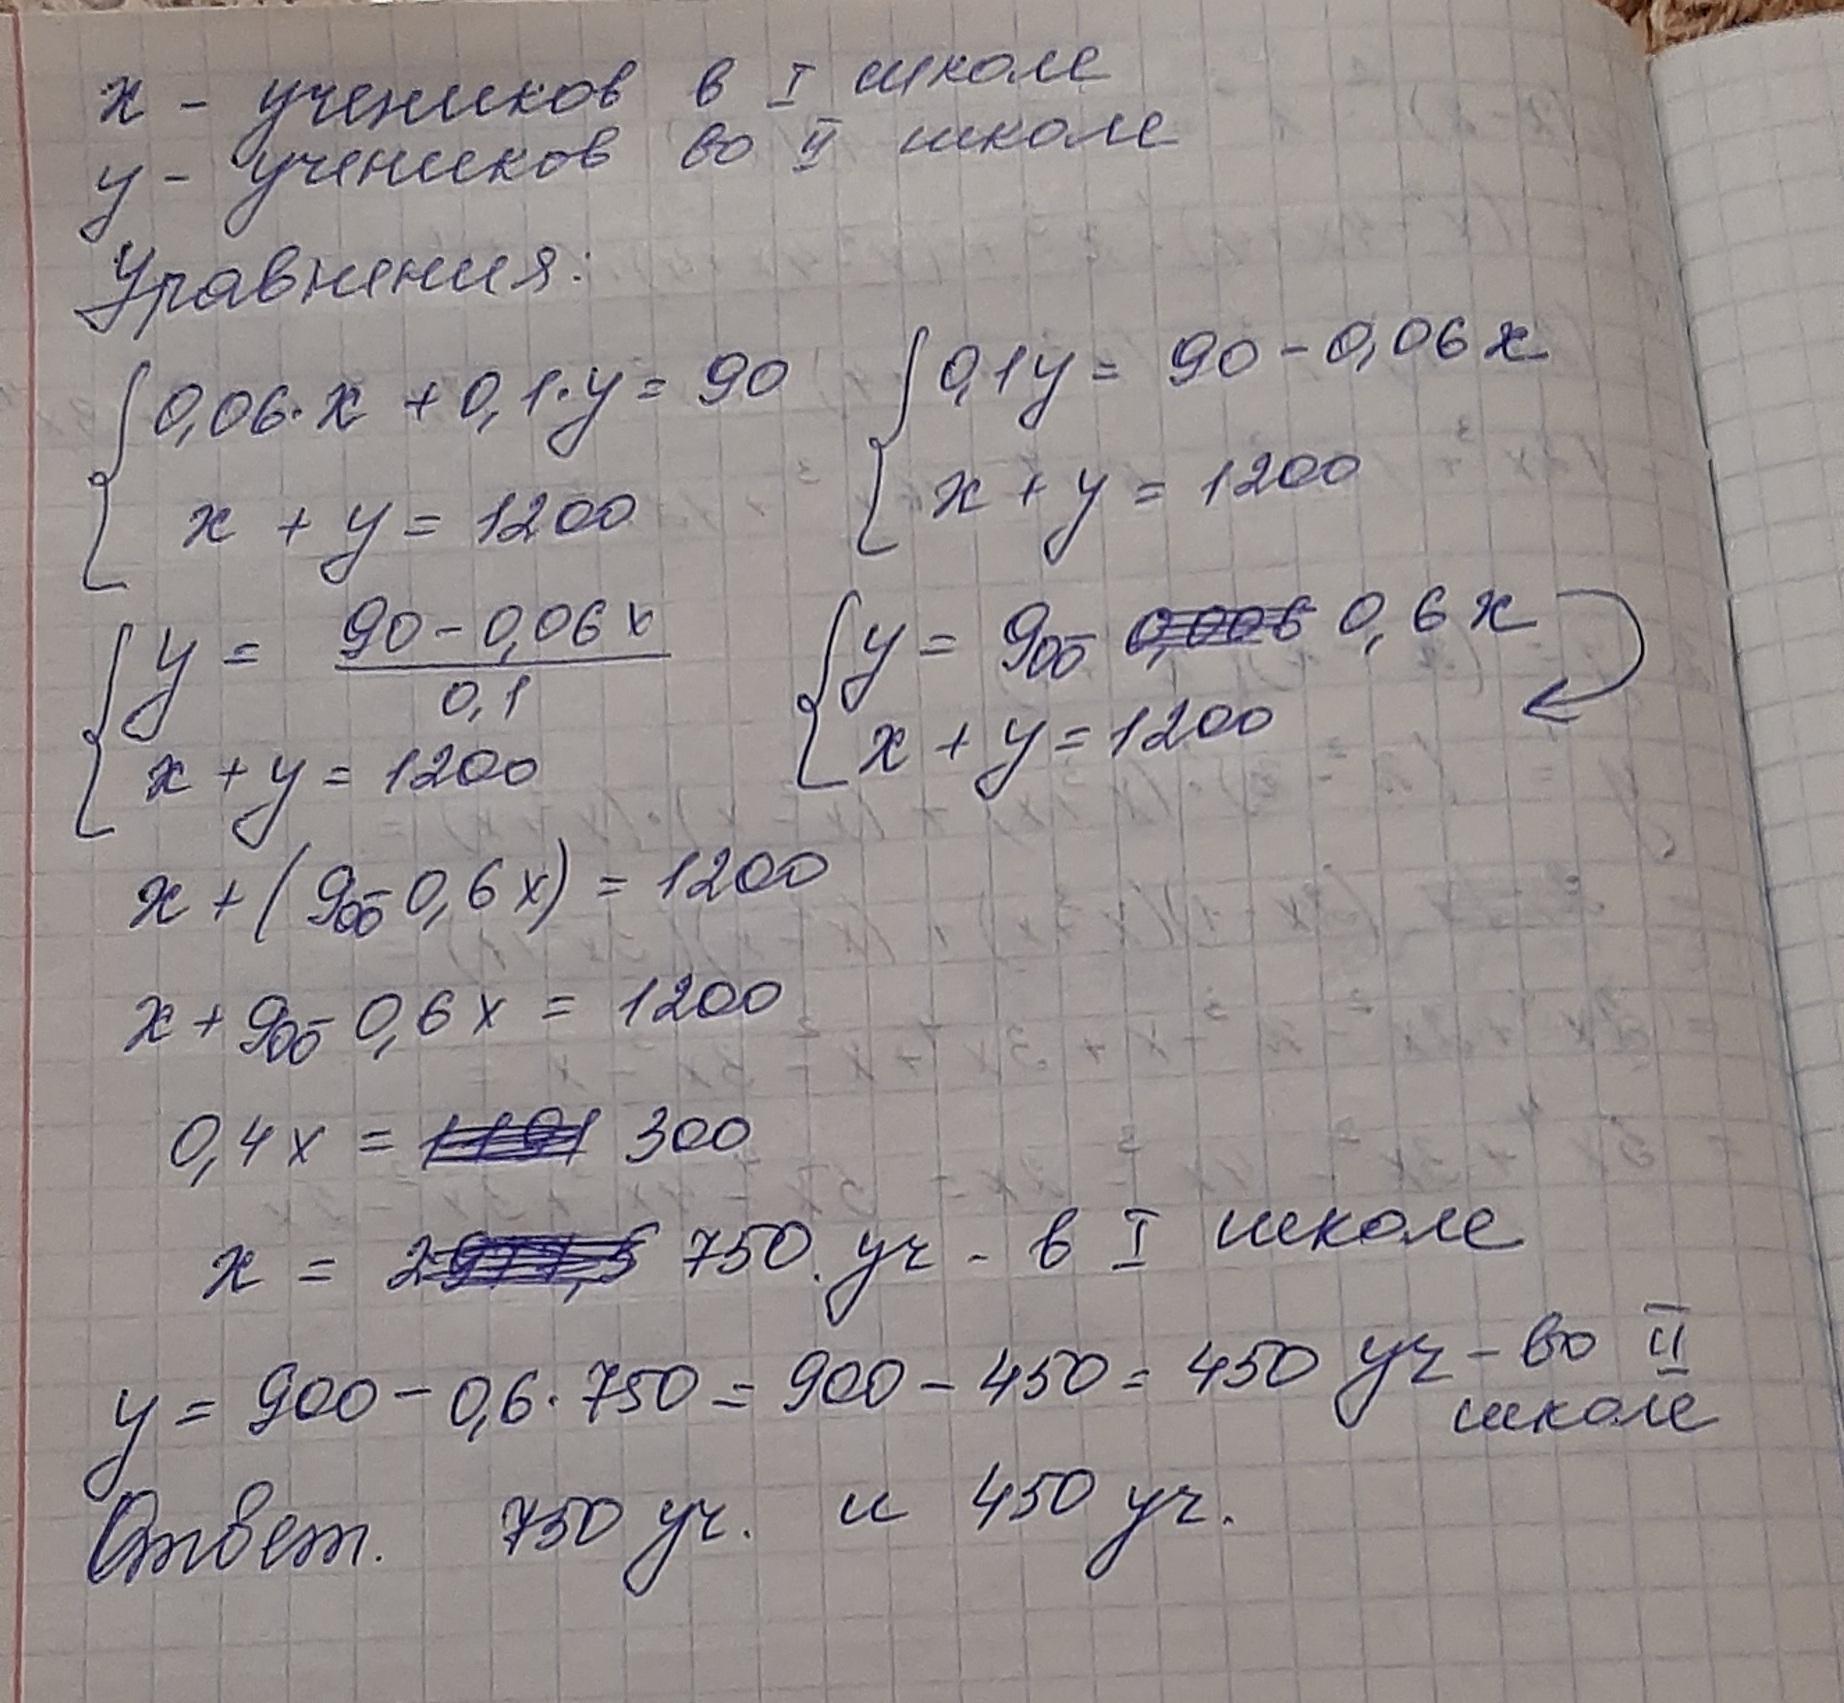 x - учеников в I школе
y - учеников во II школе
Уравнения:
{ 0,06·x + 0,1·y = 90
x + y = 1200
{ 0,1y = 90 - 0,06x
x + y = 1200
{ y = (90 - 0,06x)/0,1
x + y = 1200
{ y = 900 - 0,6x
x + y = 1200
x + (900 - 0,6x) = 1200
x + 900 - 0,6x = 1200
0,4x = 300
x = 750. уч - в I школе
y = 900 - 0,6·750 = 900 - 450 = 450 уч - во II
школе
Ответ. 750 уч. и 450 уч.